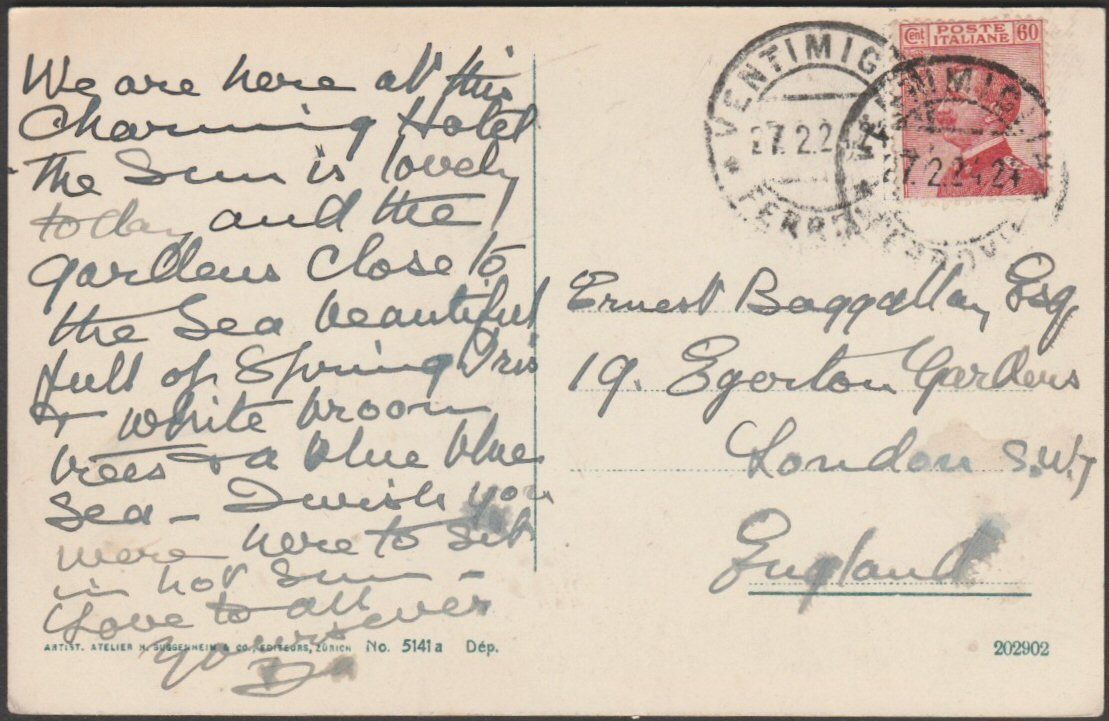 We are here at this
Charming Hotel
The Sun is lovely
today and the
gardens close to
the Sea beautiful
full of Spring Iris
& white broom
trees & a blue blue
Sea — I wish you
were here to sit
in hot Sun —
Love to all
yours ever
ARTIST. ATELIER H. GUGGENHEIM & CO., EDITEURS, ZÜRICH No. 5141a Dép.
VENTIMIGLIA
27.2.24
FERROVIA
VENTIMIGLIA
27.2.24.24
FERROVIA
Cent POSTE ITALIANE 60
Ernest Baggallay Esq
19. Egerton Gardens
London S.W.
England
202902